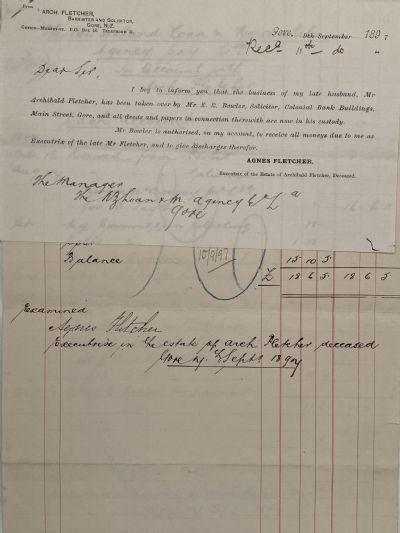 From
ARCH. FLETCHER,
BARRISTER AND SOLICITOR,
GORE, N.Z.
Gore, 9th September 1897
Recd 11th do
Dear Sir,
I beg to inform you that the business of my late husband, Mr
Archibald Fletcher, has been taken over by Mr E. E. Bowler, Solicitor, Colonial Bank Buildings,
Main Street, Gore, and all deeds and papers in connection therewith are now in his custody.
Mr Bowler is authorised, on my account, to receive all moneys due to me as
Executrix of the late Mr Fletcher, and to give discharges therefor.
AGNES FLETCHER,
Executrix of the Estate of Archibald Fletcher, Deceased.
The Manager
The NZ Loan & M. Agency Co La
Gore
10/9/97
Balance 15 10 5
£ 18 6 5 18 6 5
Examined
Agnes Fletcher
Executrix in the estate of Arch Fletcher deceased
Gore Sept 1897